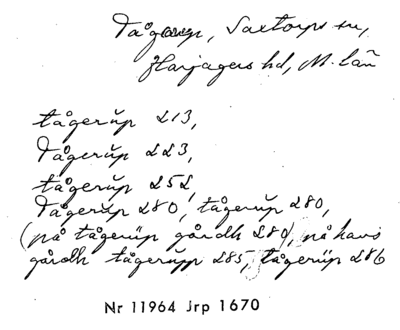 Tågerup, Saxtorps sn,
Harjagers hd, M. län
tågerŭp 213,
Tågerŭp 223,
tågerŭp 252,
Tågerŭp 280, tågerŭp 280,
(på tågerŭp gårdh 280), på hans
gårdh tågerŭpp 285, tågerŭp 286
Nr 11964 Jrp 1670